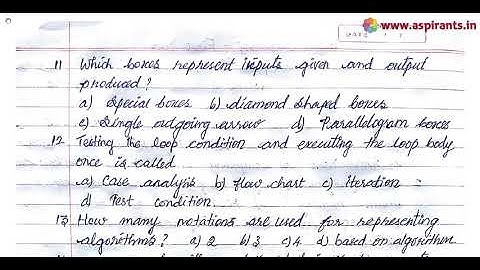 www.aspirants.in
DATE
11 Which boxes represent inputs given and output
produced?
a) special boxes b) diamond shaped boxes
c) Single outgoing arrow d) Parallelogram boxes
12. Testing the loop condition and executing the loop body
once is called
a) Case analysis b) flow chart c) iteration
d) Test condition.
13 How many notations are used for representing
algorithms? a) 2 b) 3 c) 4 d) based on algorithm